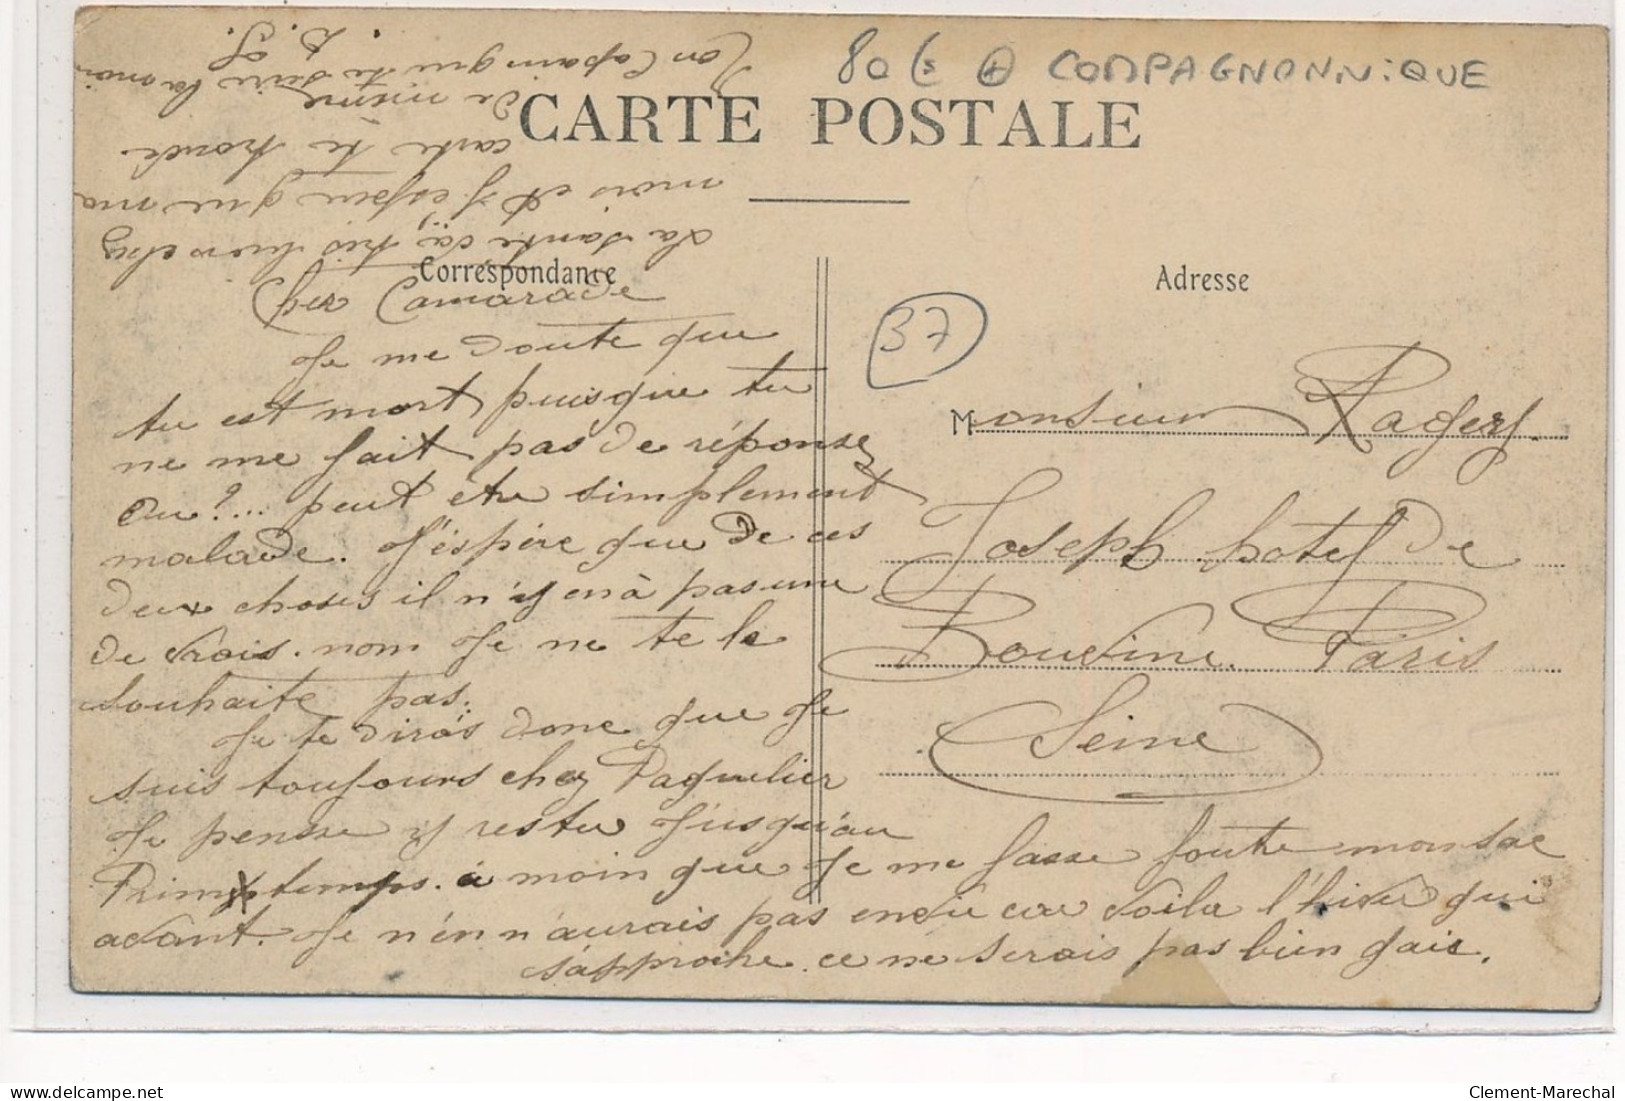 80€ + COMPAGNONNIQUE
CARTE POSTALE
Correspondance
Adresse
37
Cher Camarade
Je me doute que
tu est mort puisque tu
ne me fait pas de réponse
Ou?... peut etre simplement
malade. J'éspère que de ces
deux choses il n'y en à pas une
de vrais. nom Je ne te le
souhaite pas.
Je te dirais donc que Je
suis toujours chez Paquelier
Je pense y rester Jusqu'au
Primptemps. à moin que Je me fasse foutre mon sac
avant. Je n'en n'aurais pas envie car voila l'hiver qui
s'approche. ce ne serais pas bien gaie.
La santé va très bien chez
mois et J'espère que ma
carte te trouve
de même
Ton Copain que te serre la main
Monsieur Ragers
Joseph hotel de
Boudine. Paris
Seine
Clement-Marechal